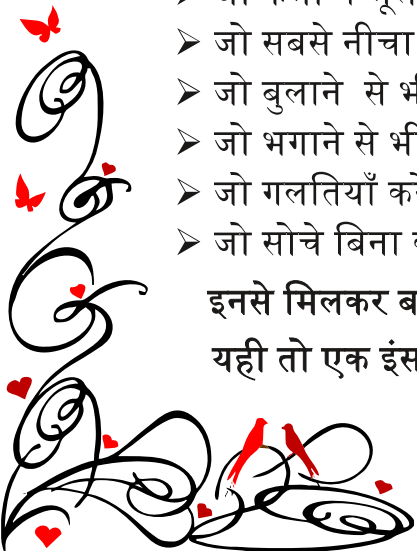 ➢ जो सबसे नीचा
➢ जो बुलाने से
➢ जो भगाने से
➢ जो गलतियाँ
➢ जो सोचे बिना
इनसे मिलकर
यही तो एक